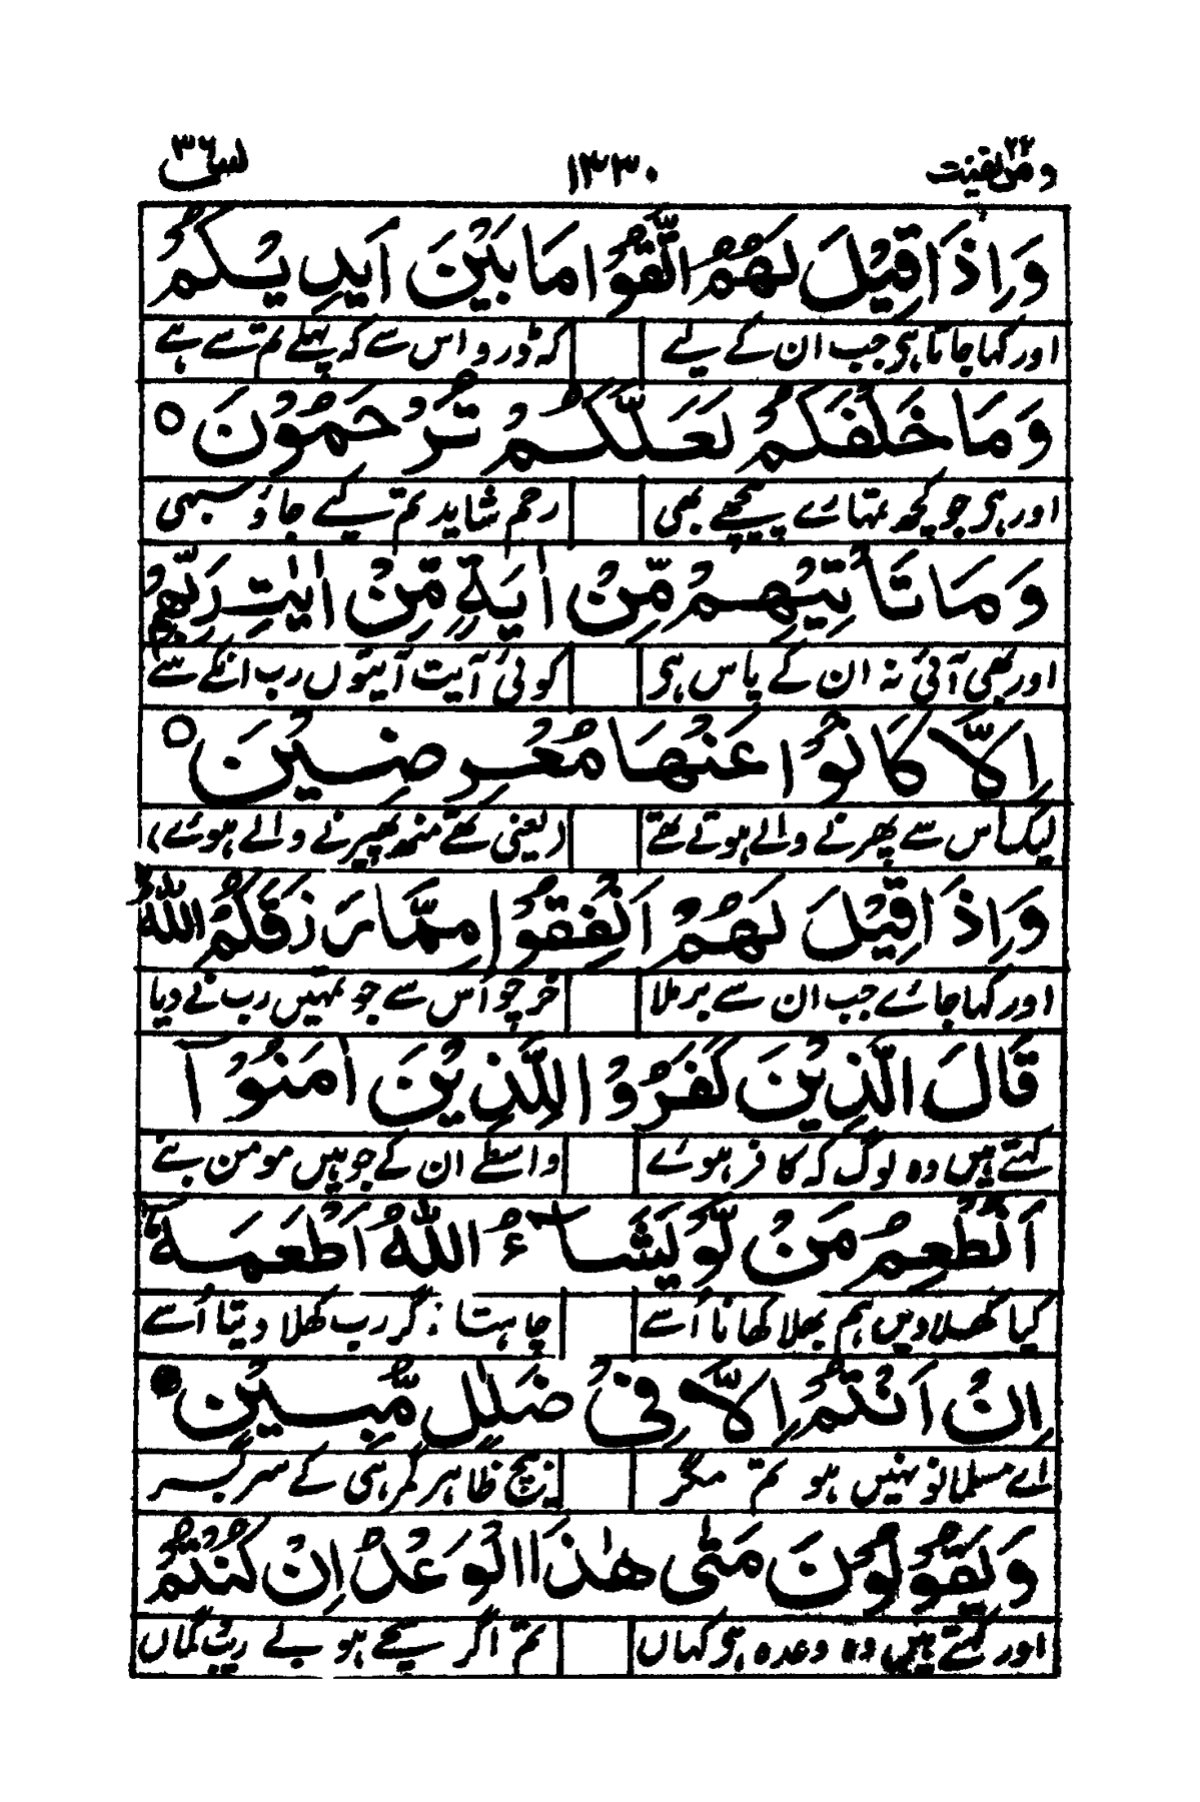 ومن یقنیت ۲۲ ۱۳۳۰ یٰس ۳۶
وَاِذَا قِیْلَ لَهُمُ اتَّقُوْا مَا بَیْنَ اَیْدِیْكُمْ
اور کہا جاتا ہی جب ان کے لیے کہ ڈرو اس سے کہ پہلے تم سے ہے
وَمَا خَلْفَكُمْ لَعَلَّكُمْ تُرْحَمُوْنَ ۝
اور ہی جو کچھ تمہارے پیچھے بھی رحم شاید تم کیے جاؤ سبھی
وَمَا تَاْتِیْهِمْ مِّنْ اٰیَةٍ مِّنْ اٰیٰتِ رَبِّهِمْ
اور بھی آئی نہ ان کے پاس ہی کوئی آیت آیتوں رب انکے سے
اِلَّا كَانُوْا عَنْهَا مُعْرِضِیْنَ ۝
لیک اس سے پھرنے والے ہوتے تھے (یعنی تھے منھ پھیرنے والے ہوئے)
وَاِذَا قِیْلَ لَهُمْ اَنْفِقُوْا مِمَّا رَزَقَكُمُ اللّٰهُ
اور کہا جائے جب ان سے برملا خرچو اس سے جو تمہیں رب نے دیا
قَالَ الَّذِیْنَ كَفَرُوْا لِلَّذِیْنَ اٰمَنُوْۤا
کہتے ہیں وہ لوگ کہ کافر ہوئے واسطے ان کے جو ہیں مومن بنے
اَنُطْعِمُ مَنْ لَّوْ یَشَآءُ اللّٰهُ اَطْعَمَهٗۤ
کیا کھلادیں ہم بھلا کھانا اُسے چاہتا گر رب کھلا دیتا اُسے
اِنْ اَنْتُمْ اِلَّا فِیْ ضَلٰلٍ مُّبِیْنٍ ۝
اے مسلمانو نہیں ہو تم مگر بیچ ظاہر گمرہی کے سر بسر
وَیَقُوْلُوْنَ مَتٰی هٰذَا الْوَعْدُ اِنْ كُنْتُمْ
اور کہتے ہیں وہ وعدہ ہی کہاں تم اگر سچے ہو بے ریب گماں